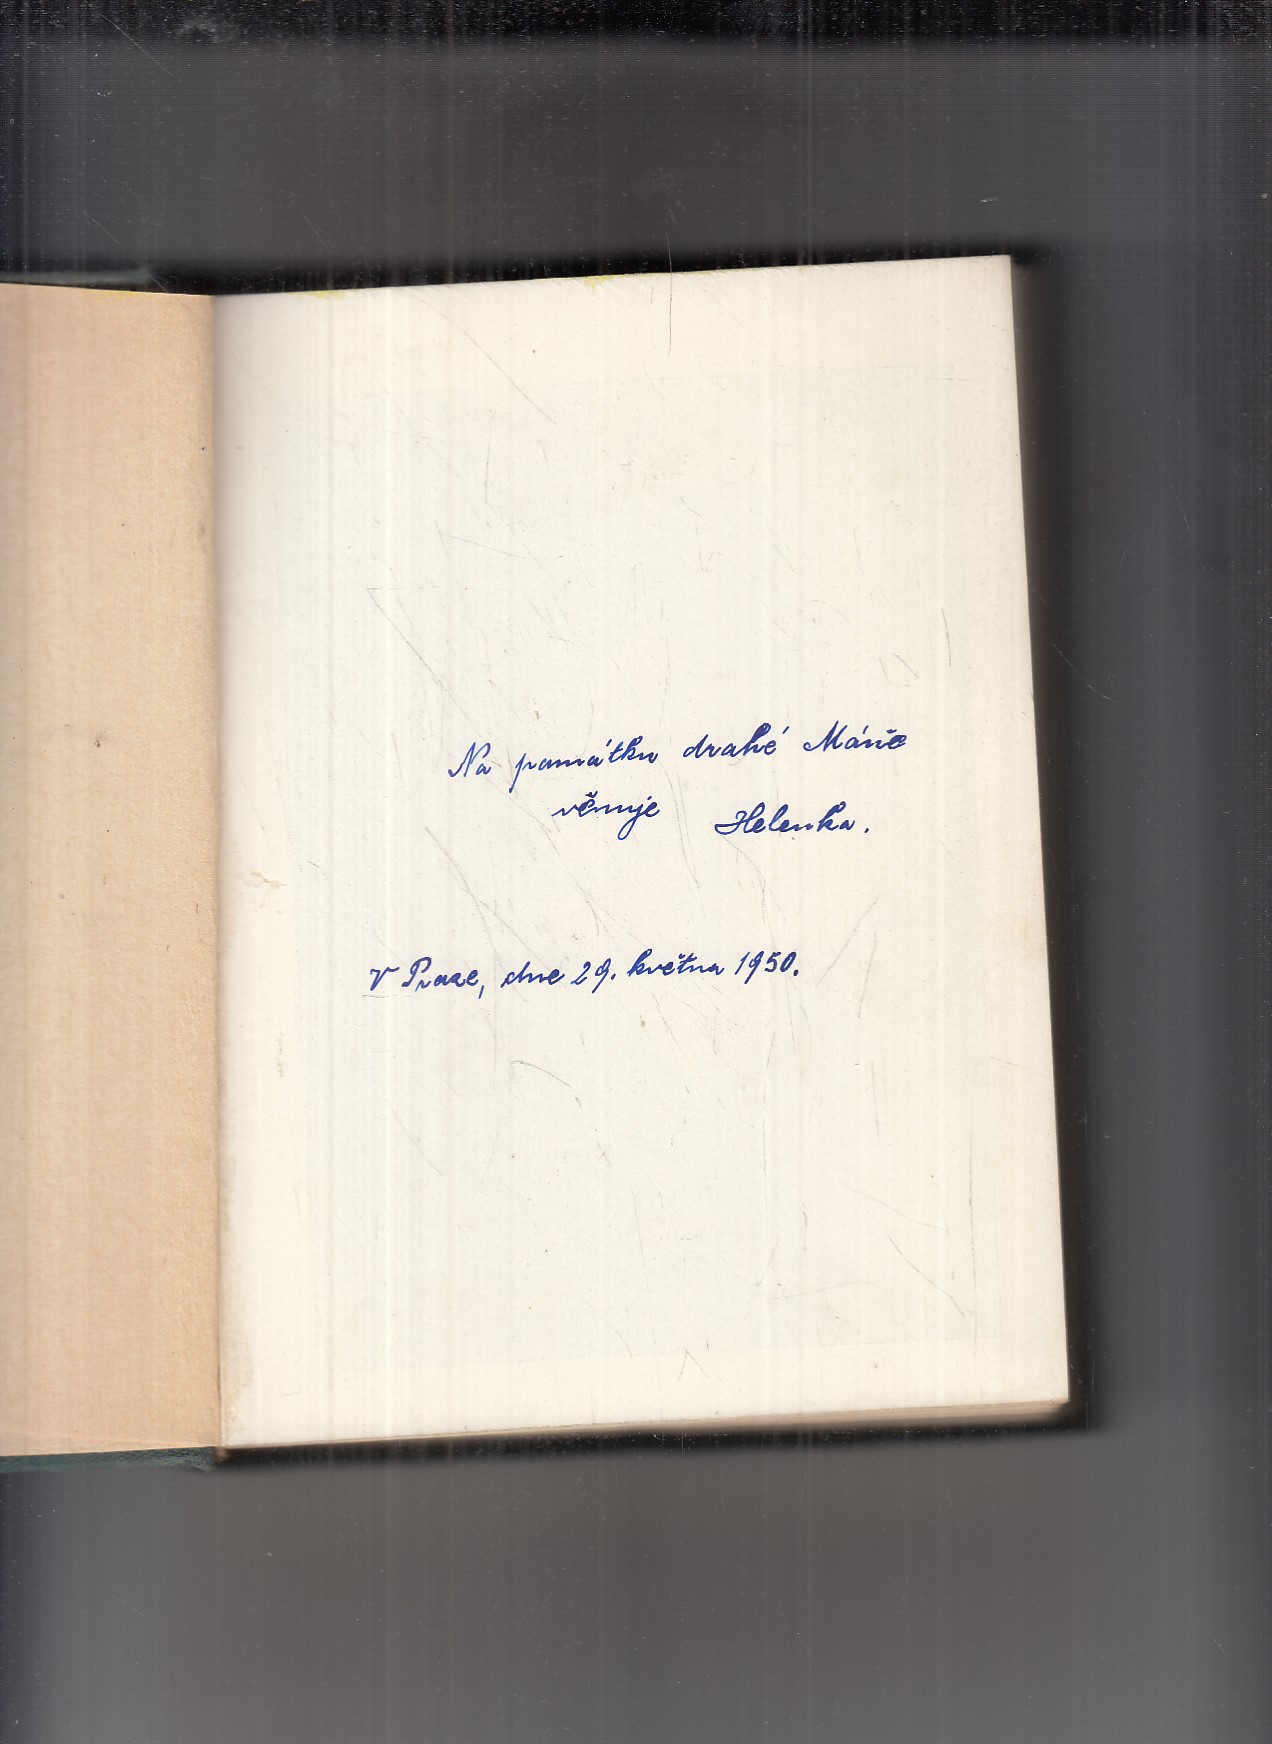 Na památku drahé Máně
věnuje Helenka.
V Praze, dne 29. května 1950.